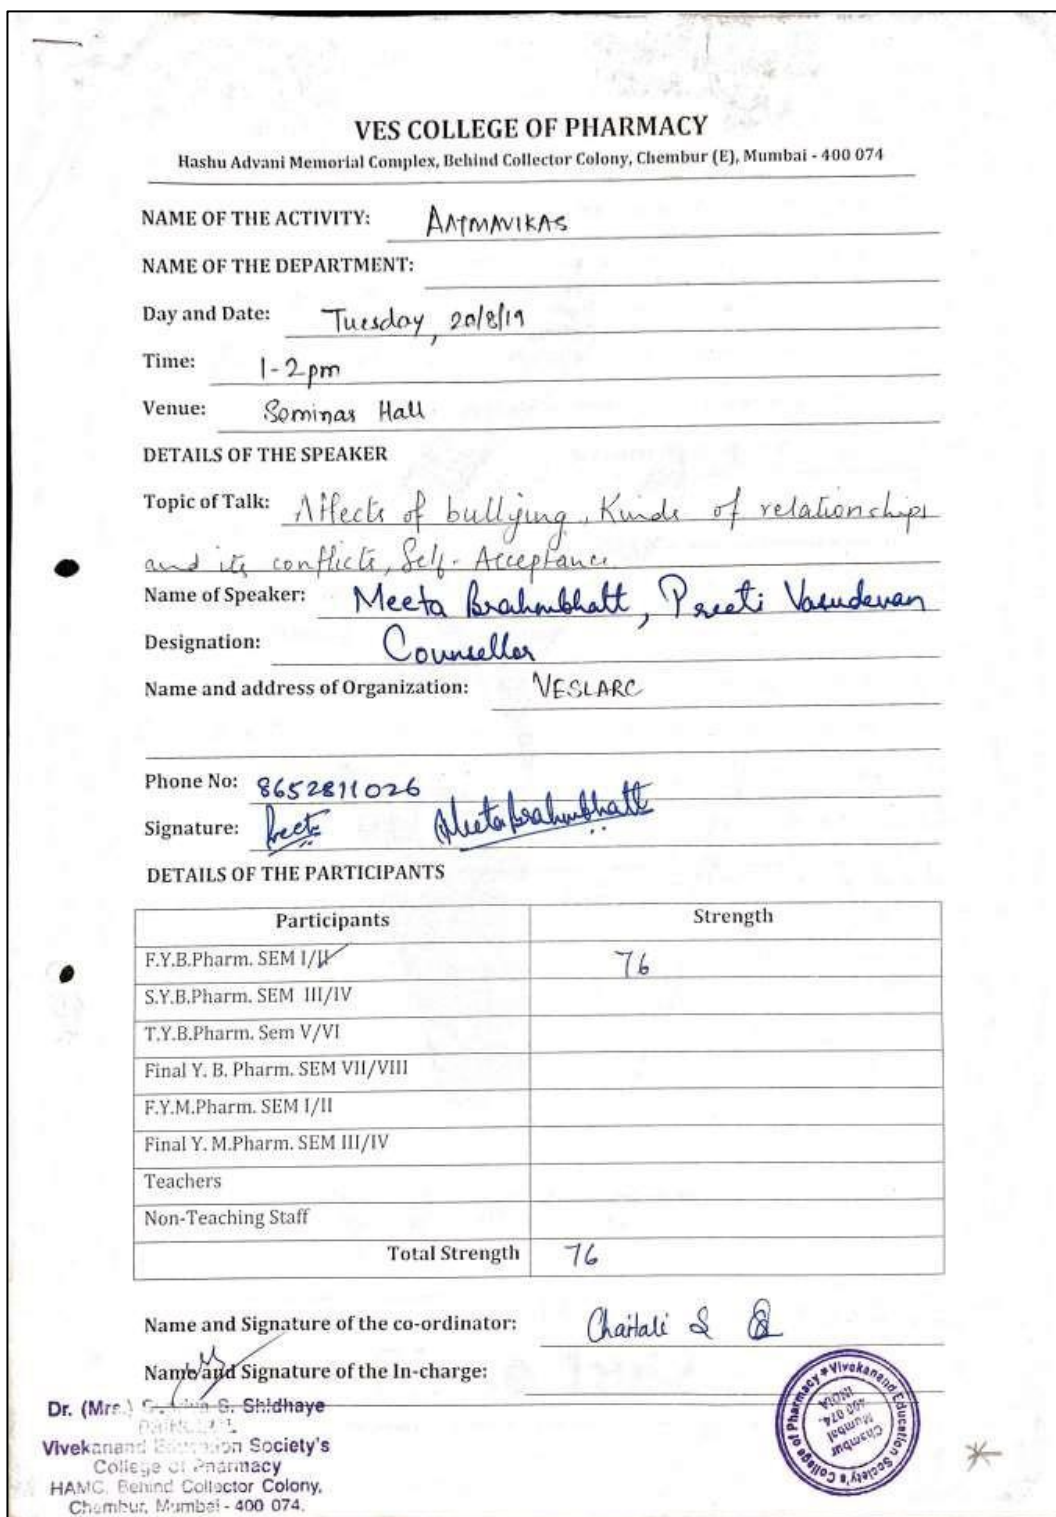 VES COLLEGE OF PHARMACY
Hashu Advani Memorial Complex, Behind Collector Colony, Chembur (E), Mumbai - 400 074
NAME OF THE ACTIVITY: AATMAVIKAS
NAME OF THE DEPARTMENT:
Day and Date: Tuesday, 20/8/19
Time: 1-2pm
Venue: Seminar Hall
DETAILS OF THE SPEAKER
Topic of Talk: Affects of bullying, Kinds of relationships
and its conflicts, Self-Acceptance
Name of Speaker: Meeta Brahmbhatt, Preeti Vasudevan
Designation: Counsellor
Name and address of Organization: VESLARC
Phone No: 8652811026
Signature: Preeti MeetaBrahmbhatt
DETAILS OF THE PARTICIPANTS
Participants Strength
F.Y.B.Pharm. SEM I/II 76
S.Y.B.Pharm. SEM III/IV
T.Y.B.Pharm. Sem V/VI
Final Y. B. Pharm. SEM VII/VIII
F.Y.M.Pharm. SEM I/II
Final Y. M.Pharm. SEM III/IV
Teachers
Non-Teaching Staff
Total Strength 76
Name and Signature of the co-ordinator: Chaitali S
Name and Signature of the In-charge:
Dr. (Mrs.) S. Shidhaye
Vivekanand Education Society's
College of Pharmacy
HAMC, Behind Collector Colony,
Chembur, Mumbai - 400 074.
Vivekanand Education Society's College of Pharmacy
Chembur
Mumbai
400 074.
INDIA